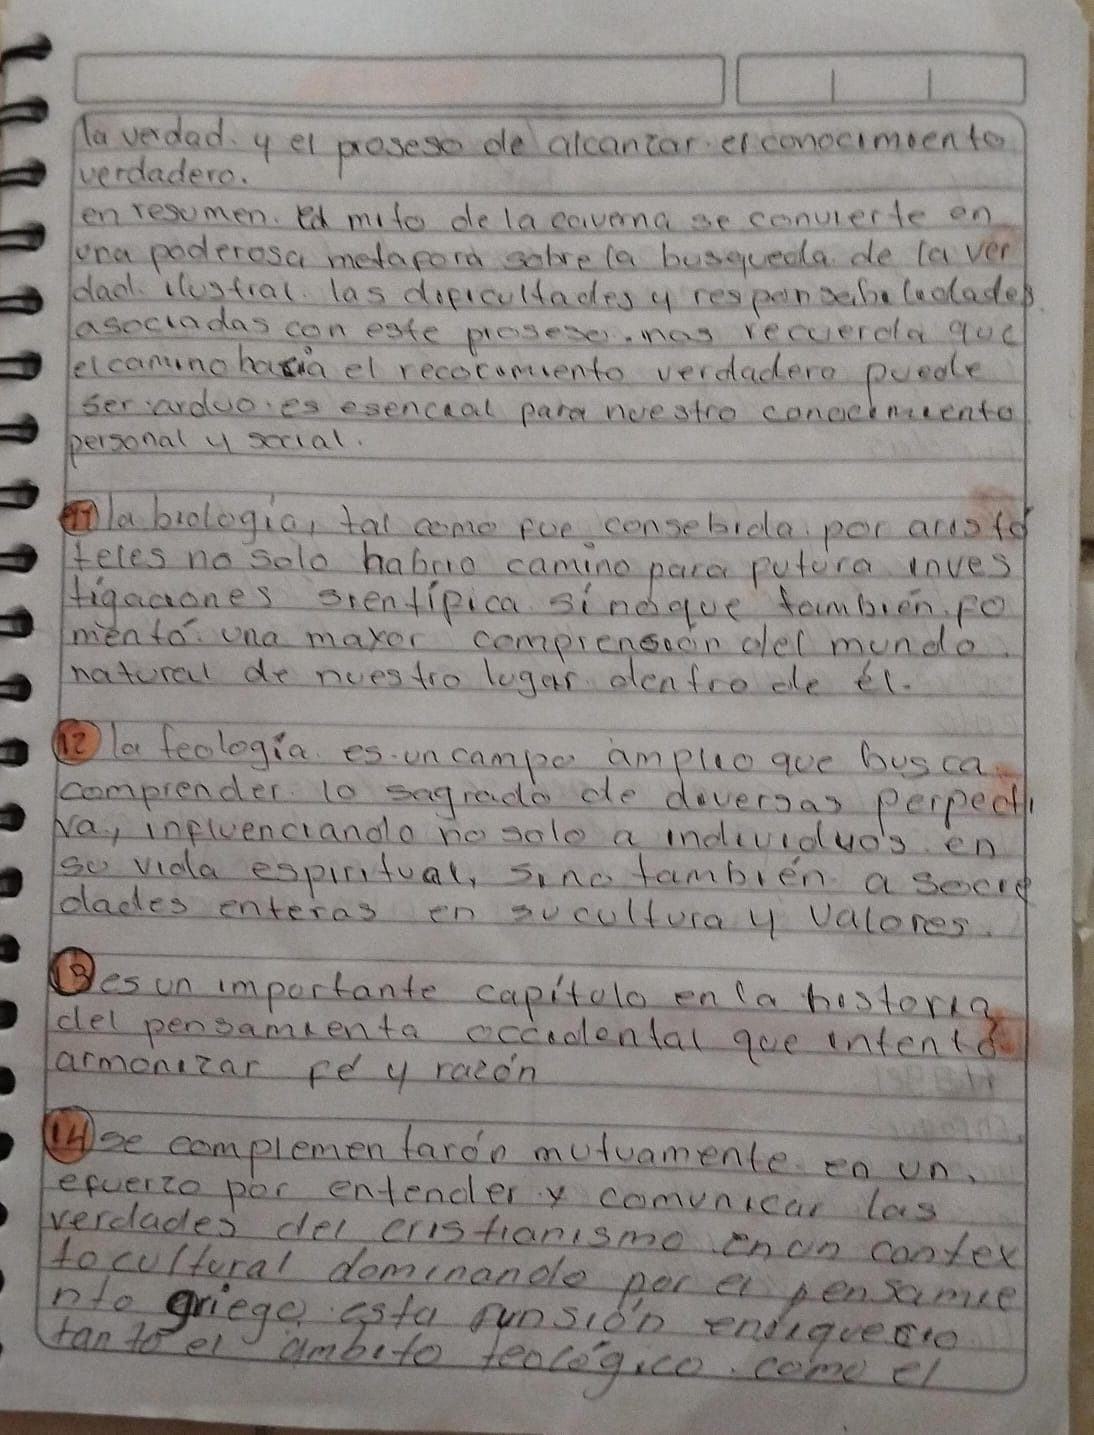 la verdad. y el proseso de alcanzar. el conocimiento
verdadero.
en resumen. El mito de la caverna se convierte en
una poderosa metapora sobre la busqueda de la ver
dad. ilustral. las dipicultades y responsabilidades
asociadas con este proseso. nos recuerda que
el camino hacia el recocimiento verdadero puede
ser arduo. es esencial para nuestro conocimiento
personal y social.
11 la biologia, tal como fue consebida por aristo
teles no solo habrio camino para putura inves
tigaciones sientípica sinóque también. fo
mentó. una maxor comprensión del mundo.
natural de nuestro lugar dentro de él.
12 la teología. es un campo amplio que busca
comprender. lo sagrado de diversas perpecti
va, inpluenciando no solo a individuos en
su vida espiritual, sino también a socie
dades enteras en su cultura y valores.
13 es un importante capítulo en la historia
del pensamiento occidental que intentó
armonizar fé y razón
14 se complementarón mutuamente. en un.
efuerzo por entender y comunicar las
verdades del cristianismo en un contex
to cultural dominando por el pensamie
nto griego. esta funsión enriquesio
tanto el ámbito teológico. como el